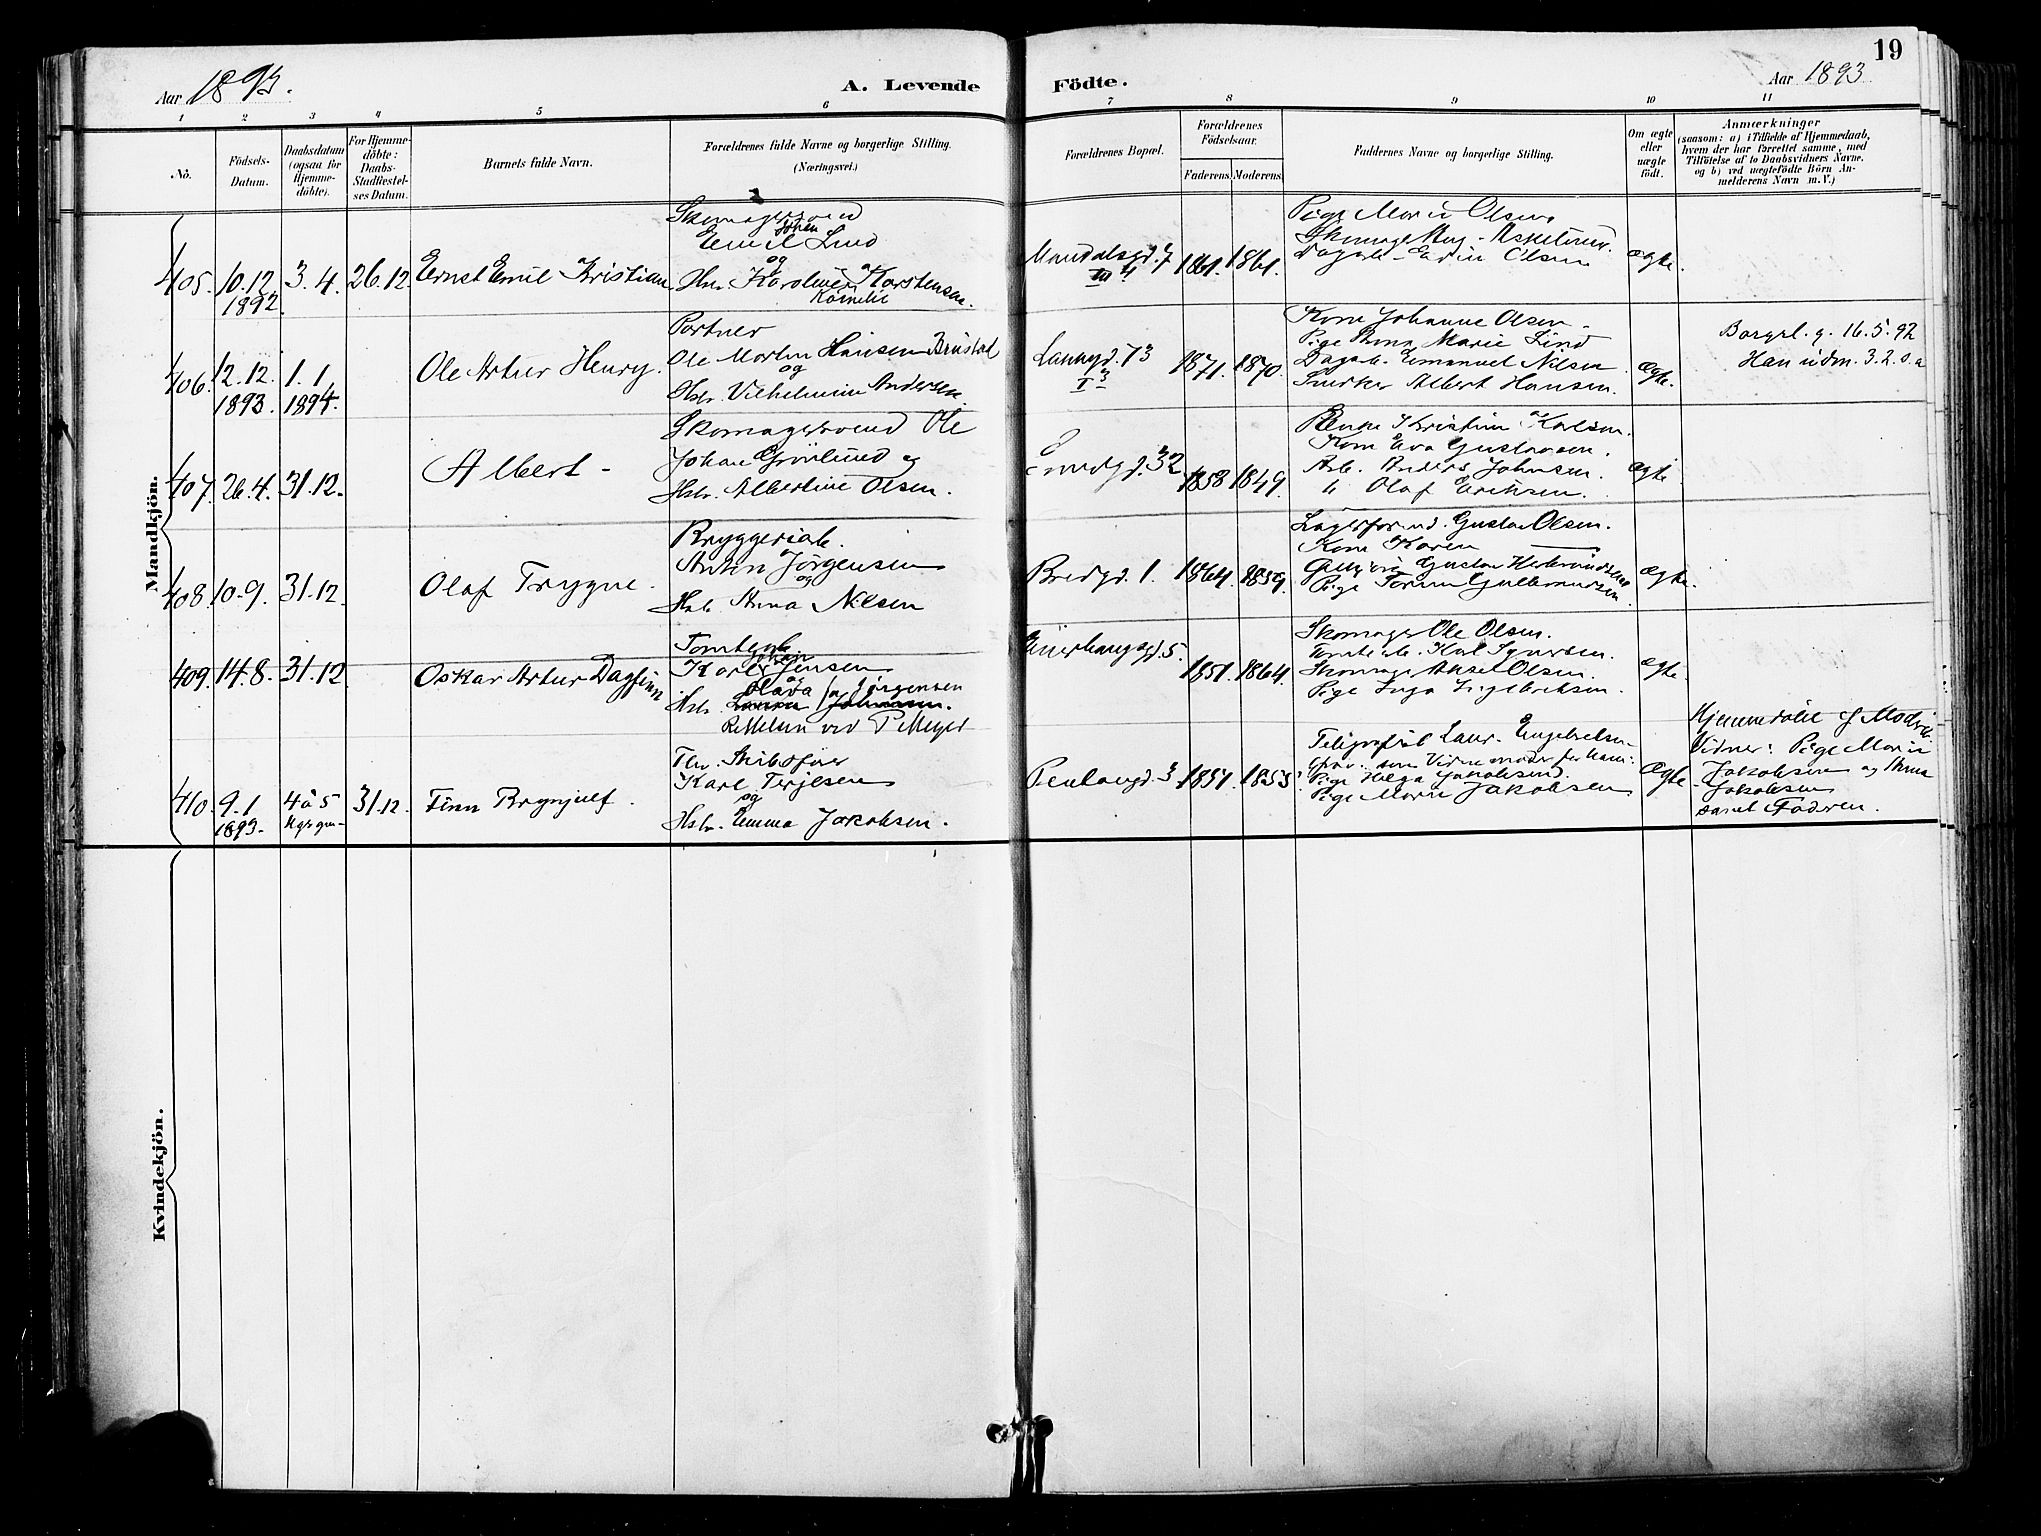 19
Aar 1893.
A. Levende
Födte.
Aar 1893
1 2 3 4 5 6 7 8 9 10 11
No.
Födsels-
Datum.
Daabsdatum
(ogsaa for
Hjemme-
döbte).
For Hjemme-
döbte:
Daabs-
Stadfæstel-
ses Datum.
Barnets fulde Navn.
Forældrenes fulde Navne og borgerlige Stilling.
(Næringsvei.)
Forældrenes Bopæl.
Forældrenes
Födselsaar.
Faderens. Moderens.
Faddernes Navne og borgerlige Stilling.
Om ægte
eller
uægte
födt.
Anmærkninger
(saasom: a) i Tilfælde af Hjemmedaab,
hvem der har forrettet samme, med
Tilföielse af to Daabsvidners Navne,
og b) ved uægtefödte Börn An-
melderens Navn m. V.)
Mandkjön.
405. 10.12 1892. 3.4. 26.12. Ernst Emil Kristian
Skomagersvend
Emil Johan Lind
og
Hstr. Karoline Kornelie Karstensen.
Mandalsgd. 7
III
1861. 1861.
Pige Marie Olsen
Dagsb. Edvin Olsen
ægte.
406. 12.12. 1893. 1.1 1894. Ole Artur Henry.
Portner
Ole Martin Hansen Brustad
og
Hstr. Vilhelmine Andersen.
1871. 1870.
Kone Johanne Olsen
Pige Anna Marie Lind
Dagsb. Emanuel Nilsen
Snerker Albert Hansen.
ægte.
Borgerl. g. 16.5.92
Han udm. 3.2. s. a
407. 26.4. 31.12. Albert -
Skomagersvend Ole
Johan Grönlund og
Hstr. Albertine Olsen.
32
1858 1849.
Enke Kristine Karlsen.
Kone Eva Gustavsen.
Arb. Anders Johnsen.
" Olaf Eriksen.
ægte
408. 10.9. 31.12. Olaf Trygve.
Bryggeriarb.
Anton Jörgensen
og
Hstr. Anna Nilsen
Bredgd. 1. 1864. 1859.
Lagerformd. Gustav Olsen.
Kone Karen ——
Pige Torine Gulbrandsen
ægte.
409. 14.8. 31.12. Oskar Artur Dagfinn
Tomtearb
Karl Johan Jensen
og
Hstr. Olava Jörgensen
Rettelsen ved P. Meyer
5.
1851. 1864.
Skomager Ole Olsen.
Tomtearb. Karl Syversen.
Skomager Aksel Olsen.
Pige Inga Ingebriktsen.
ægte.
410. 9.1 1893. 4 à 5 31.12. Finn Brynjulf.
Fhv. Skibsförer
Karl Terjesen
og
Hstr. Emma Jakobsen.
3 1851. 1853
Telegrafist Laur. Engebretsen
Pige Helga Jakobsen.
Pige Marie Jakobsen
ægte
Hjemmedöbt af
Vidner: Pige Marie
Jakobsen og
Jakobsen
samt Faderen.
Kvindekjön.